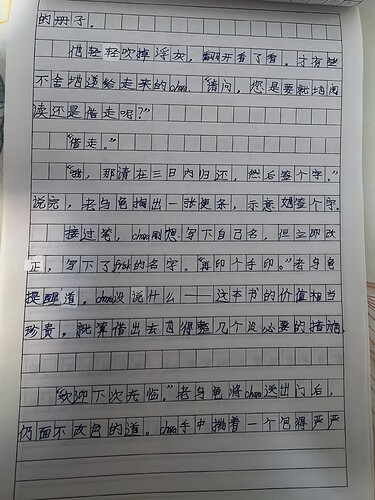 的册子。
他轻轻吹掉浮灰，翻开看了看，才有些
不舍地递给走来的chara“请问，您是要就地阅
读还是借走呢？”
“借走。”
“哦，那请在三日内归还，然后签个字。”
说完，老乌龟掏出一张便条，示意她签个字。
接过笔，chara刚想写下自己名，但立即改
正，写下了frisk的名字。“再印个手印。”老乌龟
提醒道。chara没说什么——这本书的价值相当
珍贵，就算借出去也得整几个没必要的措施。
“欢迎下次光临。”老乌龟将chara送出门后，
仍面不改色的道。chara手中揣着一个包得严严